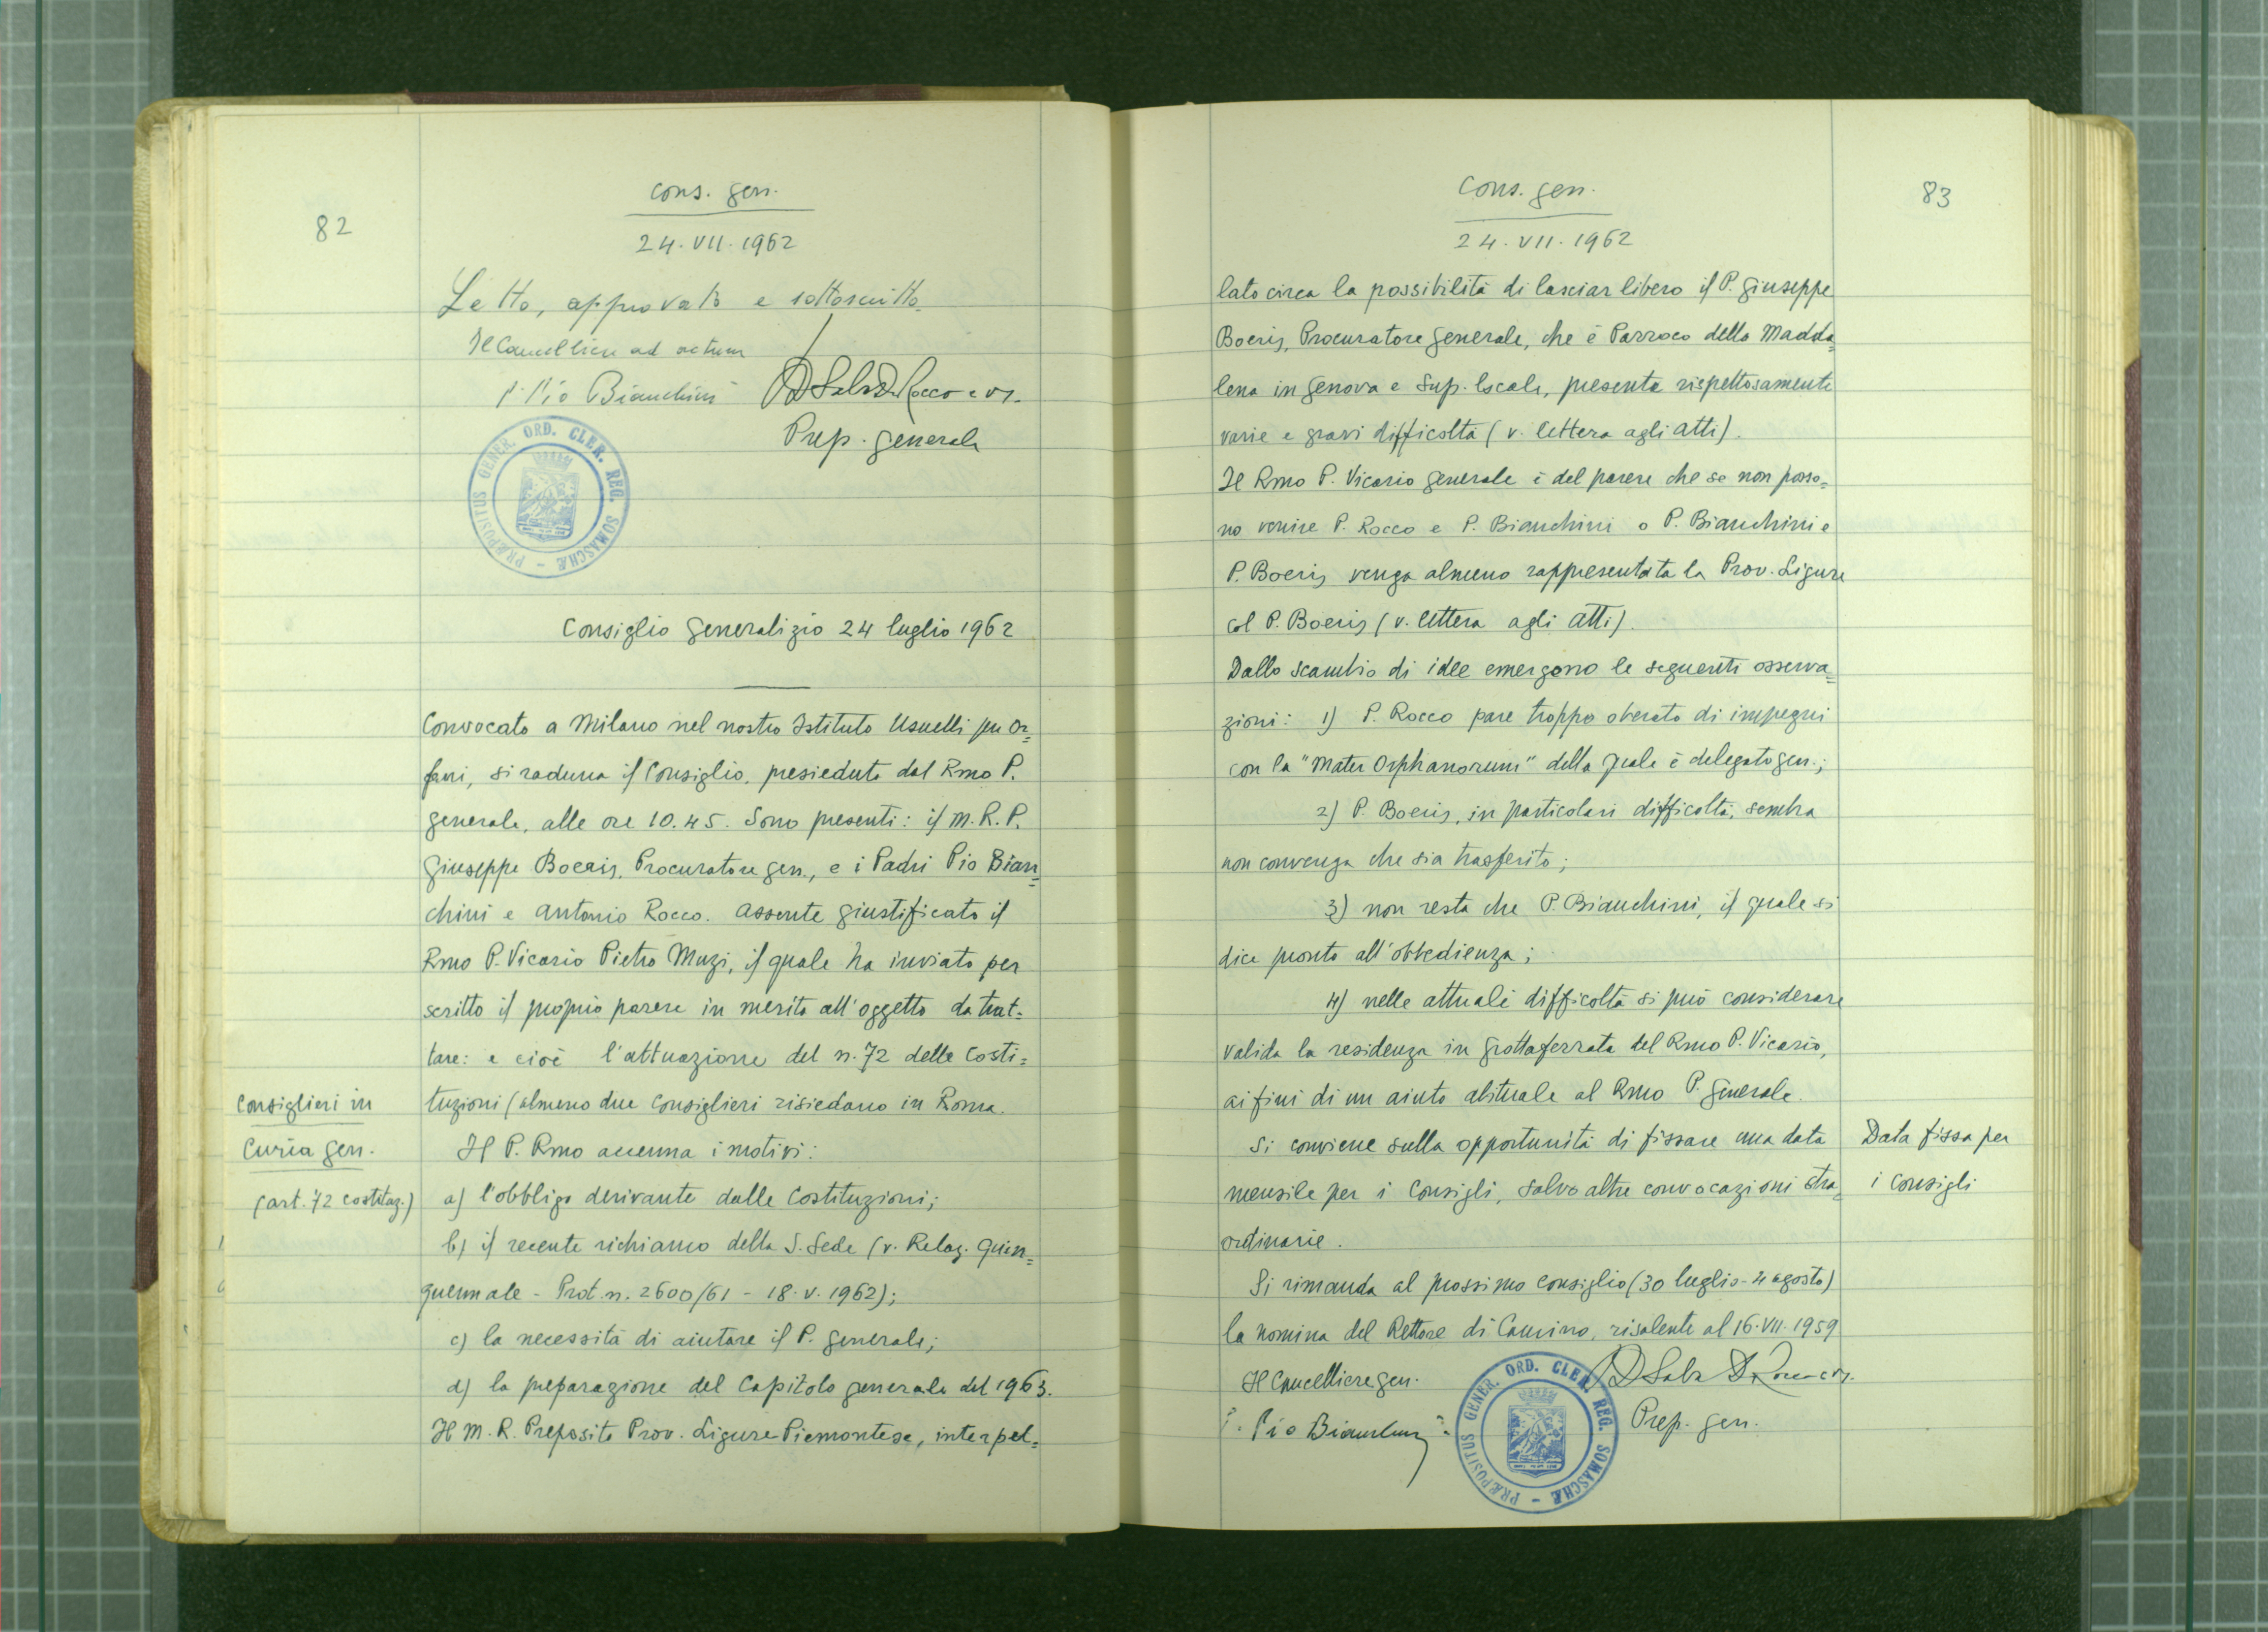 82
Cons. gen.
24.VII.1962
Letto, approvato e sottoscritto.
Il Cancelliere ad actum
P. Pio Bianchini
Prep. generale
PRÆPOSITUS GENER. ORD. CLER. REG. SOMASCHÆ
Consiglio Generalizio 24 luglio 1962
Convocato a Milano nel nostro Istituto Usuelli per or=
fani, si raduna il Consiglio, presieduto dal Rmo P.
generale, alle ore 10.45. Sono presenti: il M.R.P.
Giuseppe Boeris, Procuratore gen., e i Padri Pio Bian=
chini e Antonio Rocco. Assente giustificato il
Rmo P. Vicario Pietro Muzi, il quale ha inviato per
scritto il proprio parere in merito all'oggetto da trat=
tare: e cioè l'attuazione del n. 72 delle Costi=
tuzioni (almeno due Consiglieri risiedano in Roma.
Consiglieri in
Curia gen.
(art. 72 costituz.)
Il P. Rmo accenna i motivi:
a) l'obbligo derivante dalle Costituzioni;
b) il recente richiamo della S. Sede (v. Relaz. Quin=
quennale - Prot. n. 2600/61 - 18.V.1962);
c) la necessità di aiutare il P. generale;
d) la preparazione del Capitolo generale del 1963.
Il M.R. Preposito Prov. Ligure-Piemontese, interpel=
83
Cons. gen.
24.VII.1962
lato circa la possibilità di lasciar libero il P. Giuseppe
Boeris, Procuratore Generale, che è Parroco della Madda=
lena in Genova e Sup. locale, presenta rispettosamente
varie e gravi difficoltà (v. lettera agli atti).
Il Rmo P. Vicario generale è del parere che se non posso=
no venire P. Rocco e P. Bianchini o P. Bianchini e
P. Boeris venga almeno rappresentata la Prov. Ligure
col P. Boeris (v. lettera agli atti).
Dallo scambio di idee emergono le seguenti osserva=
zioni: 1) P. Rocco pare troppo oberato di impegni
con la "Mater Orphanorum" della quale è delegato gen.;
2) P. Boeris, in particolari difficoltà, sembra
non convenga che sia trasferito;
3) non resta che P. Bianchini, il quale si
dice pronto all'obbedienza;
4) nelle attuali difficoltà si può considerare
valida la residenza in Grottaferrata del Rmo P. Vicario,
ai fini di un aiuto abituale al Rmo P. Generale.
Si conviene sulla opportunità di fissare una data
mensile per i Consigli, salvo altre convocazioni stra=
ordinarie.
Data fissa per
i Consigli
Si rimanda al prossimo Consiglio (30 luglio - 4 agosto)
la nomina del Rettore di Camino, risalente al 16.VII.1959
Il Cancelliere gen.
P. Pio Bianchini
Prep. gen.
PRÆPOSITUS GENER. ORD. CLER. REG. SOMASCHÆ